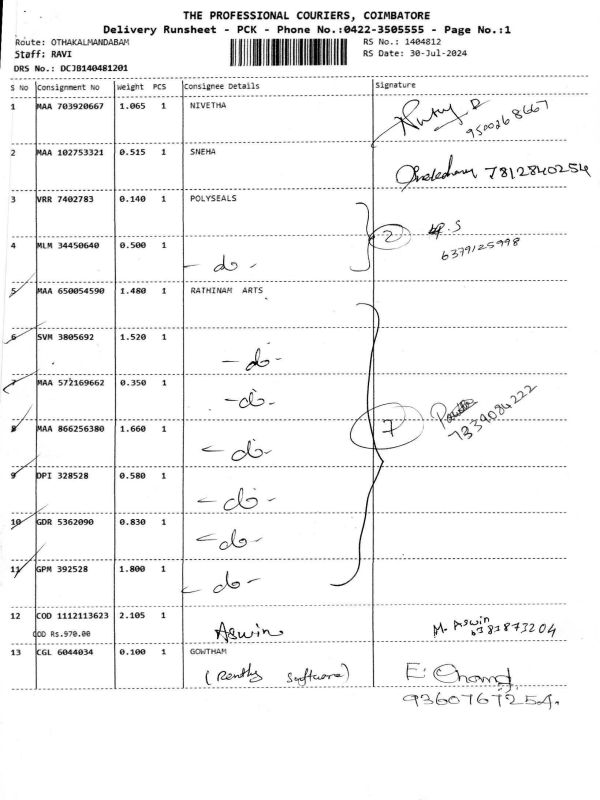 THE PROFESSIONAL COURIERS, COIMBATORE
Delivery Runsheet - PCK - Phone No.:0422-3505555 - Page No.:1
Route: OTHAKALMANDABAM RS No.: 1404812
Staff: RAVI RS Date: 30-Jul-2024
DRS No.: DCJB140481201
S No Consignment No Weight PCS Consignee Details Signature
1 MAA 703920667 1.065 1 NIVETHA
9500268667
2 MAA 102753321 0.515 1 SNEHA
7812840254
3 VRR 7402783 0.140 1 POLYSEALS
2 S
6379125998
4 MLM 34450640 0.500 1 - do -
5 MAA 650054590 1.480 1 RATHINAM ARTS
6 SVM 3805692 1.520 1 - do -
7 MAA 572169662 0.350 1 - do -
8 MAA 866256380 1.660 1 - do -
7 7339084222
9 DPI 328528 0.580 1 - do -
10 GDR 5362090 0.830 1 - do -
11 GPM 392528 1.800 1 - do -
12 COD 1112113623 2.105 1 Aswin M. Aswin
COD Rs.970.00 6381873204
13 CGL 6044034 0.100 1 GOWTHAM
(Software) E. Chand
9360767254.